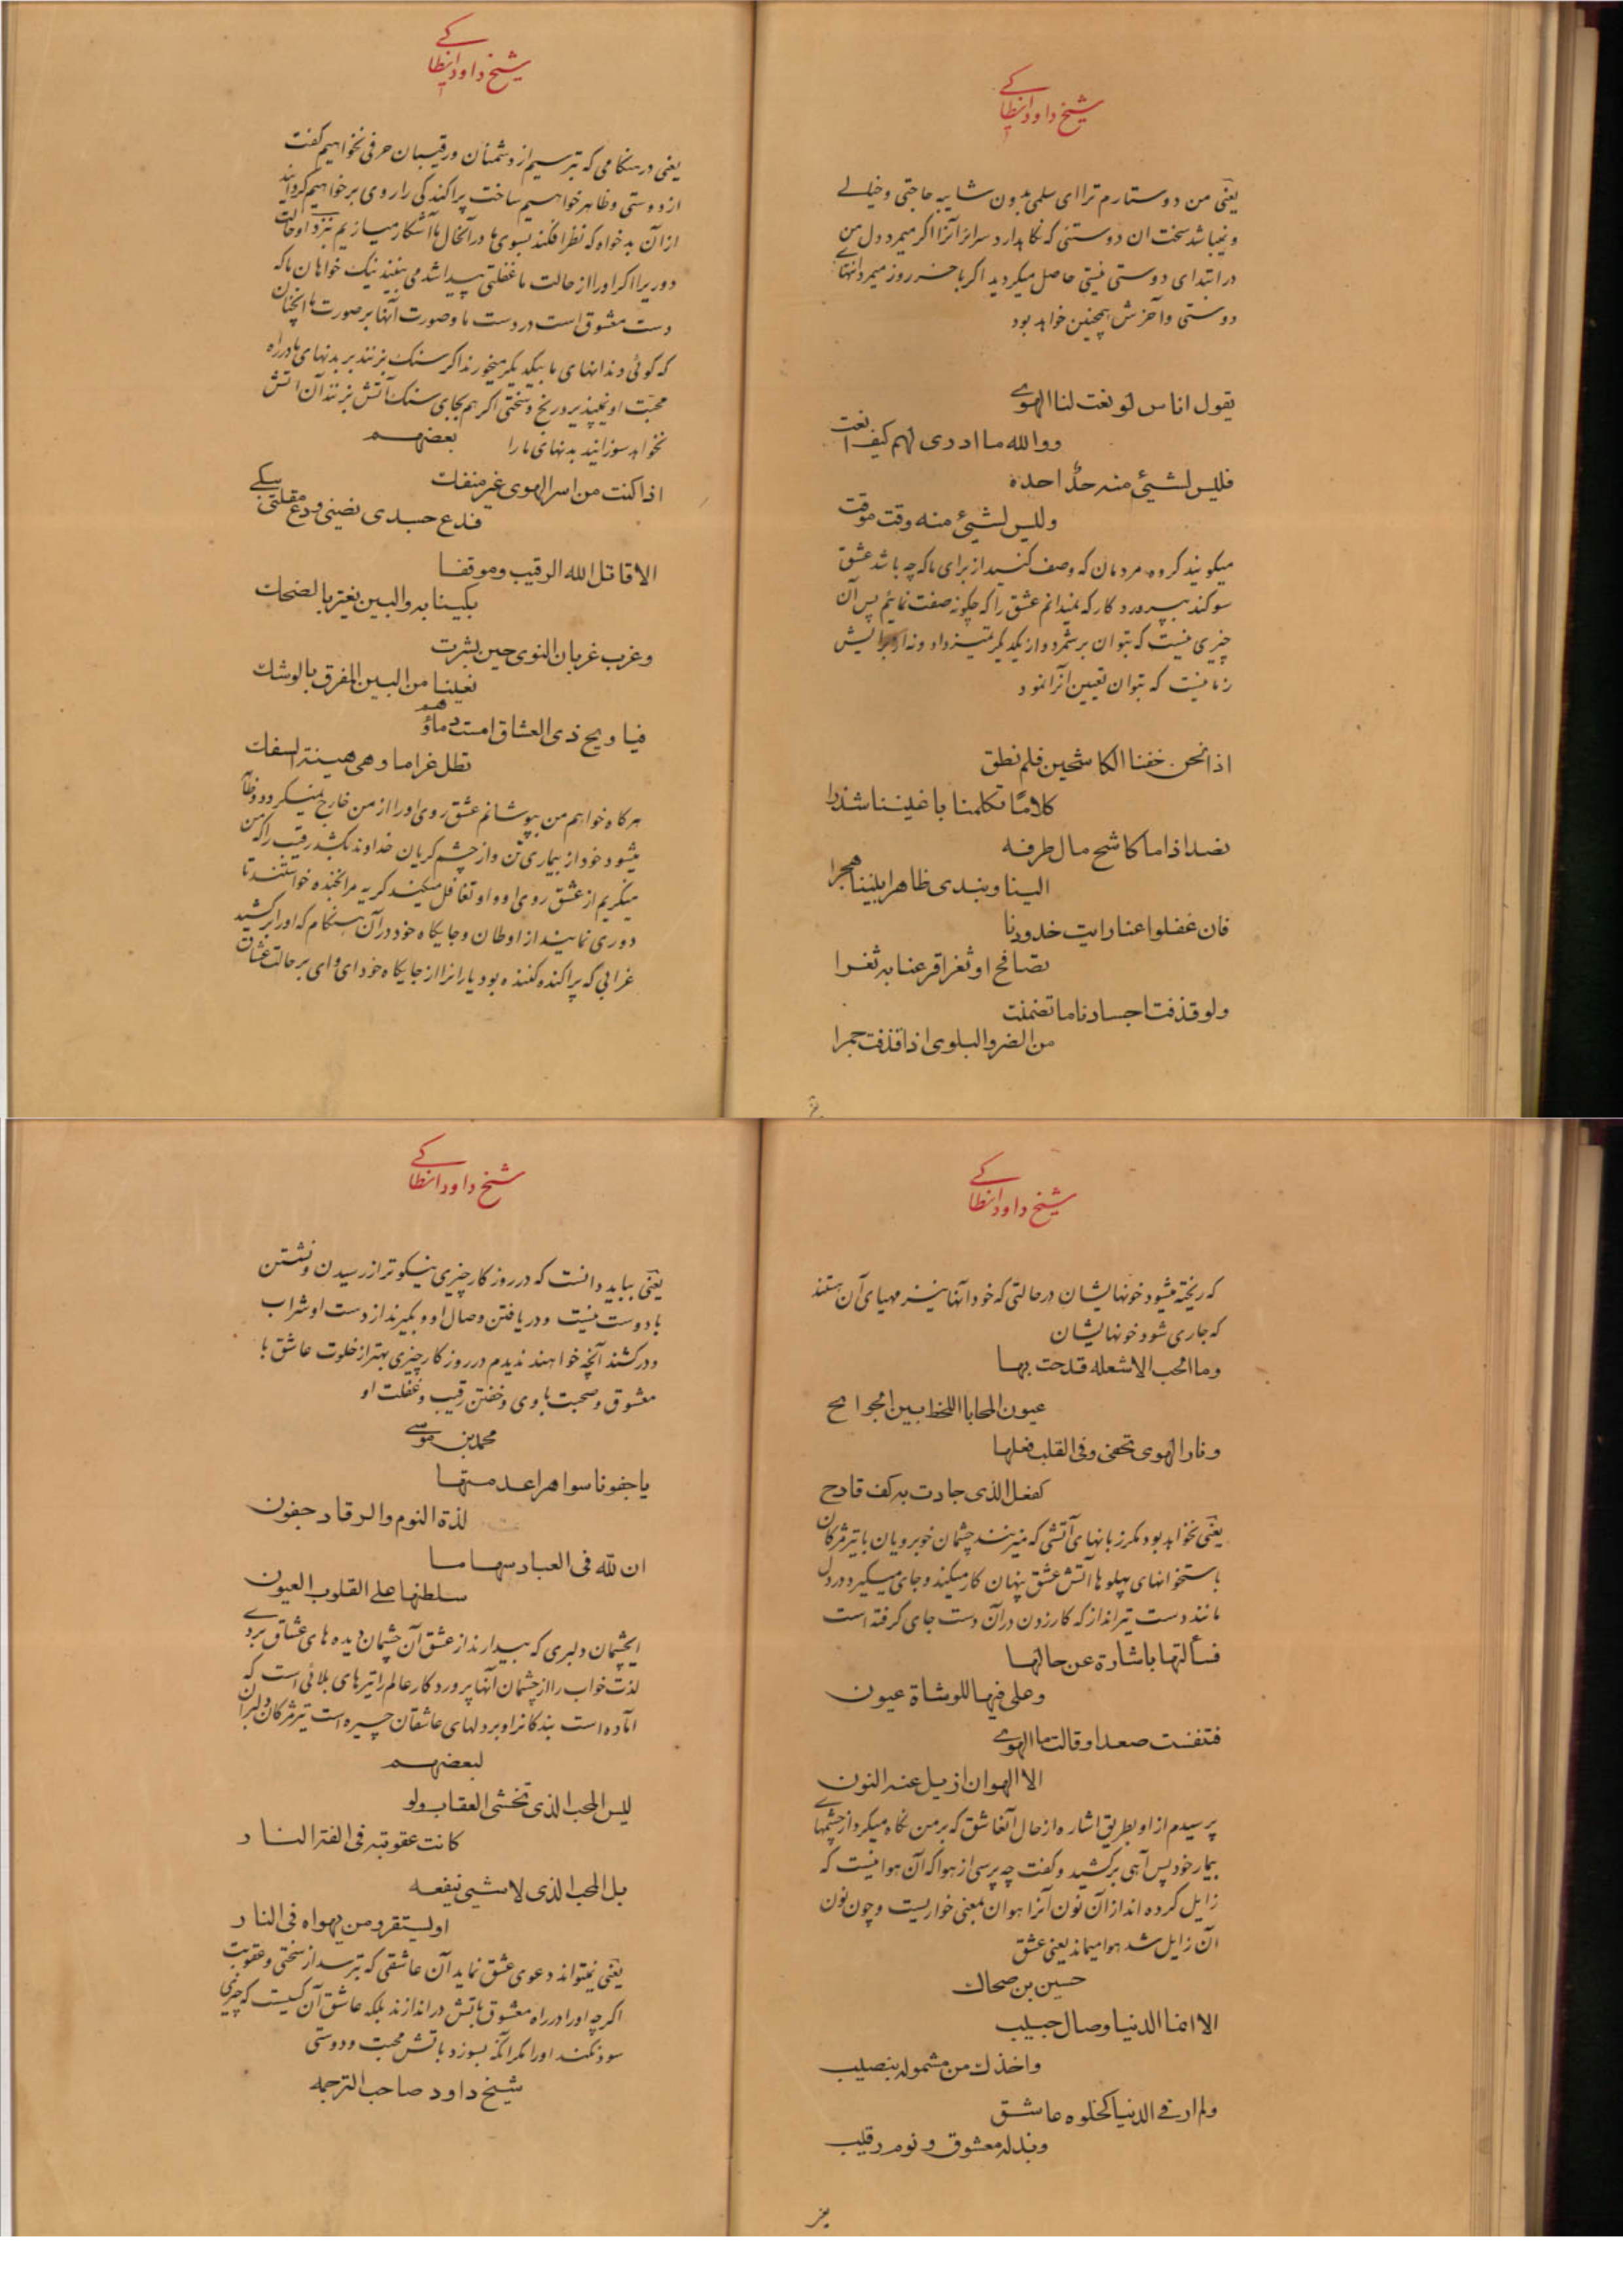 شیخ داود انطاکے
یعنی من دوستارم ترا ای سلمی بدون شایبه حاجتی و خیالے
و نمیباشد سخت ان دوستئی که نکاهدارد سرایر آنرا اکر میمرد دل من
در ابتدای دوستی نیستی حاصل میکردید اکر باخر روز میمرد انتهاے
دوستی و آخرش همچنین خواهد بود
یقول اناس لو نعت لنا الهوے
ووالله ما ادری لهم کیف انعت
فلیس لشیئ منه حدّ احده
ولیس لشیئ منه وقت موقت
میکویند کروه مردمان که وصف کنید از برای ما که چه باشد عشق
سوکند بپرورد کار که نمیدانم عشق را که چکونه صفت نمایم پس آن
چیزی نیست که بتوان بر شمرد و از یکدیکر تمیز داد و نه از برایش
زمانیست که بتوان تعیین آنرا نمود
اذا نحن خفنا الکاشحین فلم نطق
کلامًا تکلمنا باعیننا شذرا
نصد اذا ما کاشح مال طرفه
الینا ونبدی ظاهرا بیننا هجرا
فان غفلوا عنا رایت خدودنا
تصافح او ثغرا قرعنا به ثغرا
ولو قذفت اجسادنا ما تضمنت
من الضر والبلوی اذا قذفت جمرا
شیخ داود انطاکے
یعنی در هنکامی که بترسیم از دشمنان و رقیبان حرفی نخواهیم کفت
از دوستی و ظاهر خواهیم ساخت پراکندکی را روی بر خواهیم کردانید
از آن بدخواه که نظر افکند بسوی ما در آنحال ما آشکار میسازیم نزد او حالت
دوریرا اکر او را از حالت ما غفلتی پیدا شد می بینند نیک خواهان ما که
دست معشوق است در دست ما و صورت آنها بر صورت ما انچنان
که کوئی دندانهای ما بیکدیکر میخورند اکر سنک بزنند بر بدنهای ما در راه
محبت او نمیپذیرد رنج و سختی اکر هم بجای سنک آتش بزنند آن اتش
نخواهد سوزانید بدنهای ما را بعضهم
اذا کنت من اسر الهوی غیر منفک
فدع جسدی یضنی ودع مقلتی یبکے
الا قاتل الله الرقیب وموقفا
بکینا به والبین یغتر بالضحک
وغرب غربان النوی حین بشرت
نعینا من البین المفرق بالوشک
فیا ویح ذی العشاق امست دماؤهم
تطل غراما وهی هینة السفک
هرکاه خواهم من بپوشانم عشق روی او را از من خارج نمیکردد و ظاهر
میشود خود از بیماری تن و از چشم کریان خداوند بکشد رقیب را که من
میکریم از عشق روی او و او تغافل میکند کریه مرا بخنده خواستند تا
دوری نمایند از اوطان و جایکاه خود در آن هنکام که او را بر کشید
غرابی که پراکنده کننده بود یارانرا از جایکاه خود ای وای بر حالت عشاق
شیخ داود انطاکے
که ریخته میشود خونهایشان در حالتی که خود آنها نیز مهیای آن هستند
که جاری شود خونهایشان
وما الحب الا شعله قدحت بها
عیون المحابا اللحظ بین الجوانح
ونار الهوی تخفی وفی القلب فعلها
کفعل الذی جادت به کف قادح
یعنی نخواهد بود مکر زبانهای آتشی که میزنند چشمان خوبرویان با تیر مژکان
باستخوانهای پهلوها آتش عشق پنهان کار میکند و جای میکیرد در دل
مانند دست تیرانداز که کار زدن در آن دست جای کرفته است
فسألتها باشارة عن حالها
وعلی فیها للوشاة عیون
فتنفست صعدا وقالت ما الهوے
الا الهوان ازیل عنه النون
پرسیدم از او بطریق اشاره از حال آنعاشق که بر من نکاه میکرد از چشمهاے
بیمار خود پس آهی برکشید و کفت چه پرسی از هوا که آن هوا نیست که
زایل کرده اند از آن نون آنرا هوان بمعنی خواریست و چون نون
آن زایل شد هوا میماند یعنی عشق
حسین بن ضحاک
الا انما الدنیا وصال حبیب
واخذک من مشموله بنصیب
ولم ار فی الدنیا کخلوه عاشق
وبذله معشوق ونوم رقیب
شیخ داود انطاکے
یعنی بباید دانست که در روزکار چیزی نیکوتر از رسیدن و نشستن
با دوست نیست و دریافتن وصال او و بکیرند از دست او شراب
و درکشند آنچه خواهند ندیدم در روزکار چیزی بهتر از خلوت عاشق با
معشوق و صحبت باوی و خفتن رقیب و غفلت او
محمد بن موسے
یا جفونا سواهرا عدمتها
لذة النوم والرقاد جفون
ان لله فی العباد سهاما
سلطتها علی القلوب العیون
ایچشمان دلبری که بیدارند از عشق آن چشمان دیده های عشاق بردے
لذت خواب را از چشمان آنها پروردکار عالم را تیرهای بلائی است که
آماده است بندکانرا و بر دلهای عاشقان چیره است تیر مژکان دلبران
لبعضهم
لیس المحب الذی تخشی العقاب ولو
کانت عقوبته فی الفه النار
بل المحب الذی لا شیئ ینفعه
او یستقر ومن یهواه فی النار
یعنی نمیتواند دعوی عشق نماید آن عاشقی که بترسد از سختی و عقوبت
اکرچه او را در راه معشوق باتش در اندازند بلکه عاشق آن کسیست که چیزی
سود نکند او را مکر آنکه بسوزد باتش محبت و دوستی
شیخ داود صاحب الترجمه